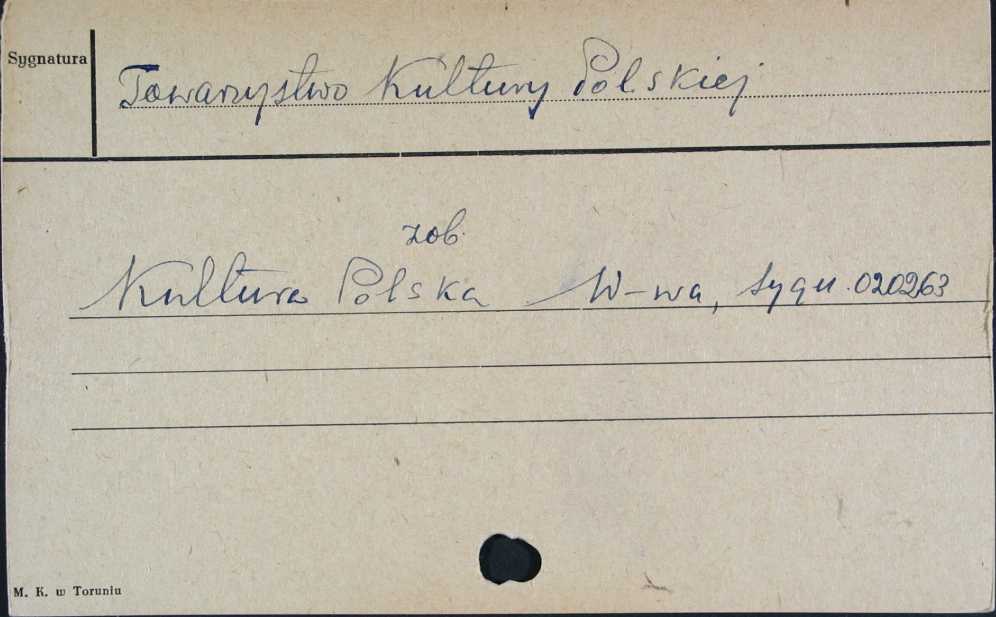 Sygnatura
Towarzystwo Kultury Polskiej
zob.
Kultura Polska W-wa, sygn. 020263
M. K. w Toruniu